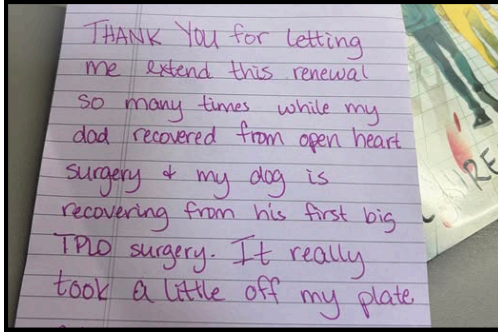 THANK YOU for letting
me extend this renewal
so many times while my
dad recovered from open heart
surgery & my dog is
recovering from his first big
TPLO surgery. It really
took a little off my plate